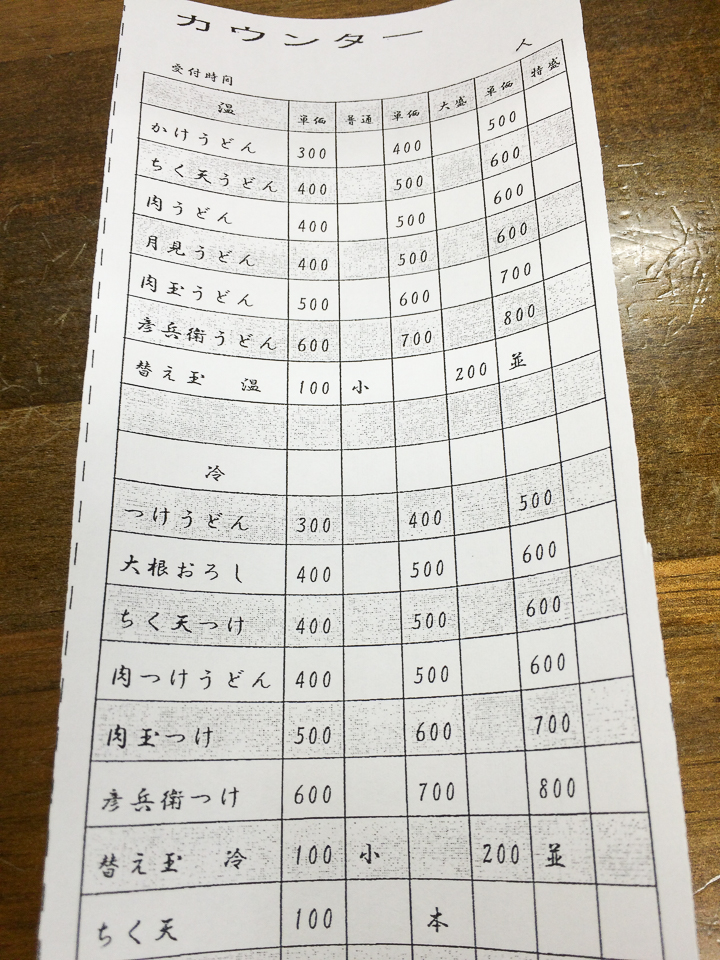 カウンター
受付時間 人
温 単価 普通 単価 大盛 単価 特盛
かけうどん 300 400 500
ちく天うどん 400 500 600
肉うどん 400 500 600
月見うどん 400 500 600
肉玉うどん 500 600 700
彦兵衛うどん 600 700 800
替え玉 温 100 小 200 並
冷
つけうどん 300 400 500
大根おろし 400 500 600
ちく天つけ 400 500 600
肉つけうどん 400 500 600
肉玉つけ 500 600 700
彦兵衛つけ 600 700 800
替え玉 冷 100 小 200 並
ちく天 100 本